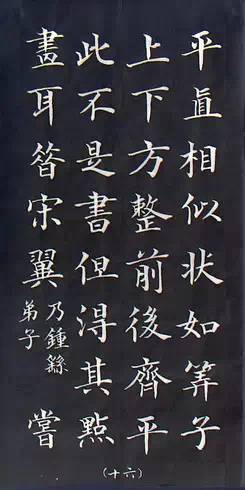 平直相似状如筭子
上下方整前後齊平
此不是書但得其點
畫耳昝宋翼乃鍾繇弟子嘗
(十六)